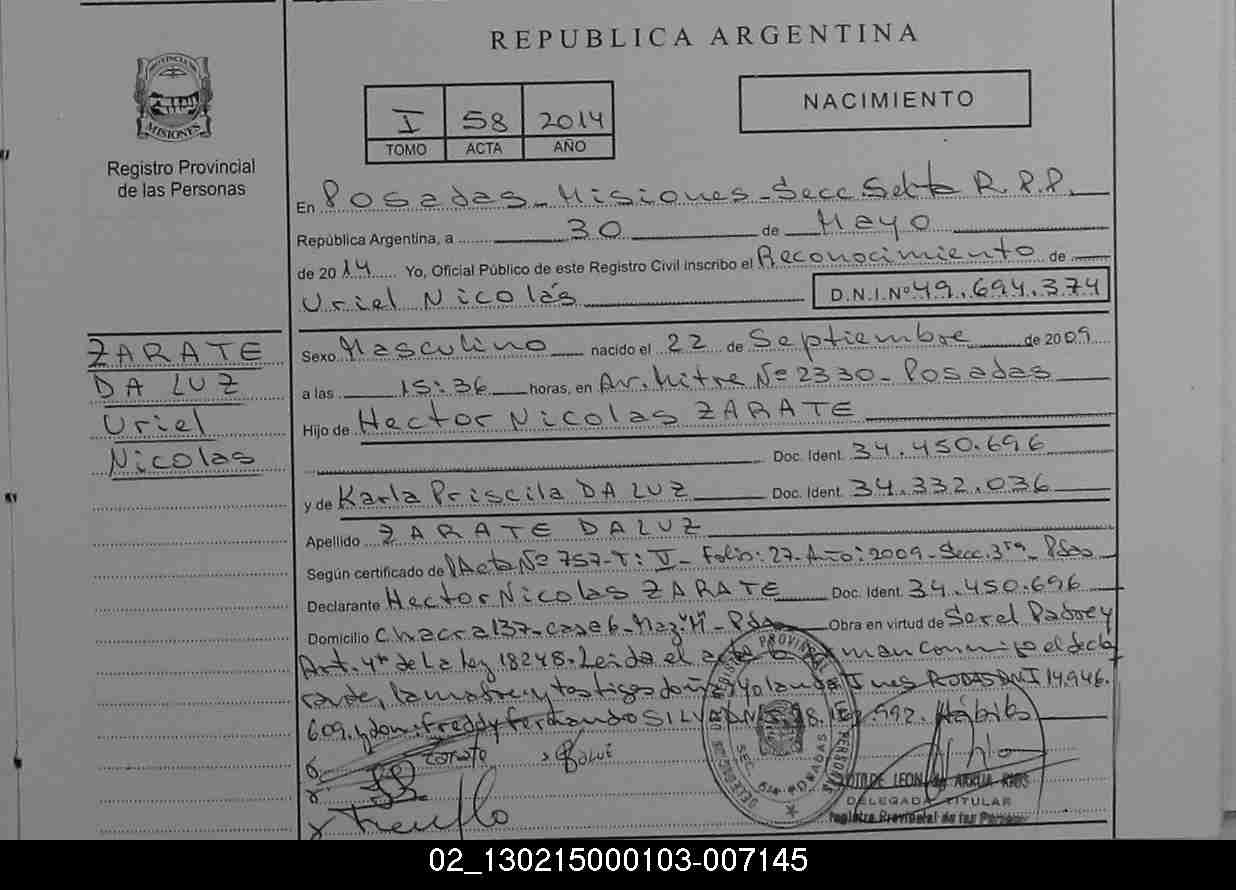 REPUBLICA ARGENTINA
PROVINCIA DE
MISIONES
Registro Provincial
de las Personas
I 58 2014
TOMO ACTA AÑO
NACIMIENTO
En Posadas - Misiones - Secc Sexta R.P.P.
República Argentina, a 30 de Mayo
de 2014 Yo, Oficial Público de este Registro Civil inscribo el Reconocimiento de
Uriel Nicolás D.N.I.Nº 49.694.374
ZARATE
DA LUZ
Uriel
Nicolas
Sexo Masculino nacido el 22 de Septiembre de 2009
a las 15:36 horas, en Av. Mitre Nº 2330 - Posadas
Hijo de Hector Nicolas ZARATE
Doc. Ident. 34.450.696
y de Karla Priscila DA LUZ Doc. Ident. 34.332.036
Apellido ZARATE DA LUZ
Según certificado de Acta Nº 757-T: II - Folio: 27-Año: 2009 - Secc. 3ra - Pdas
Declarante Hector Nicolas ZARATE Doc. Ident. 34.450.696
Domicilio Chacra 137-casa 6-Maz "M"- Obra en virtud de Ser el Padre y
Art. 4º de La ley 18248. Leida el acta man conmigo el decla
rante, la madre y testigos doña Yolanda Ines RODAS DNI 14.946.
609. y don: Freddy Fernando 992.
ZARATE
DELEGADA TITULAR
Registro Provincial de las Personas
02_130215000103-007145